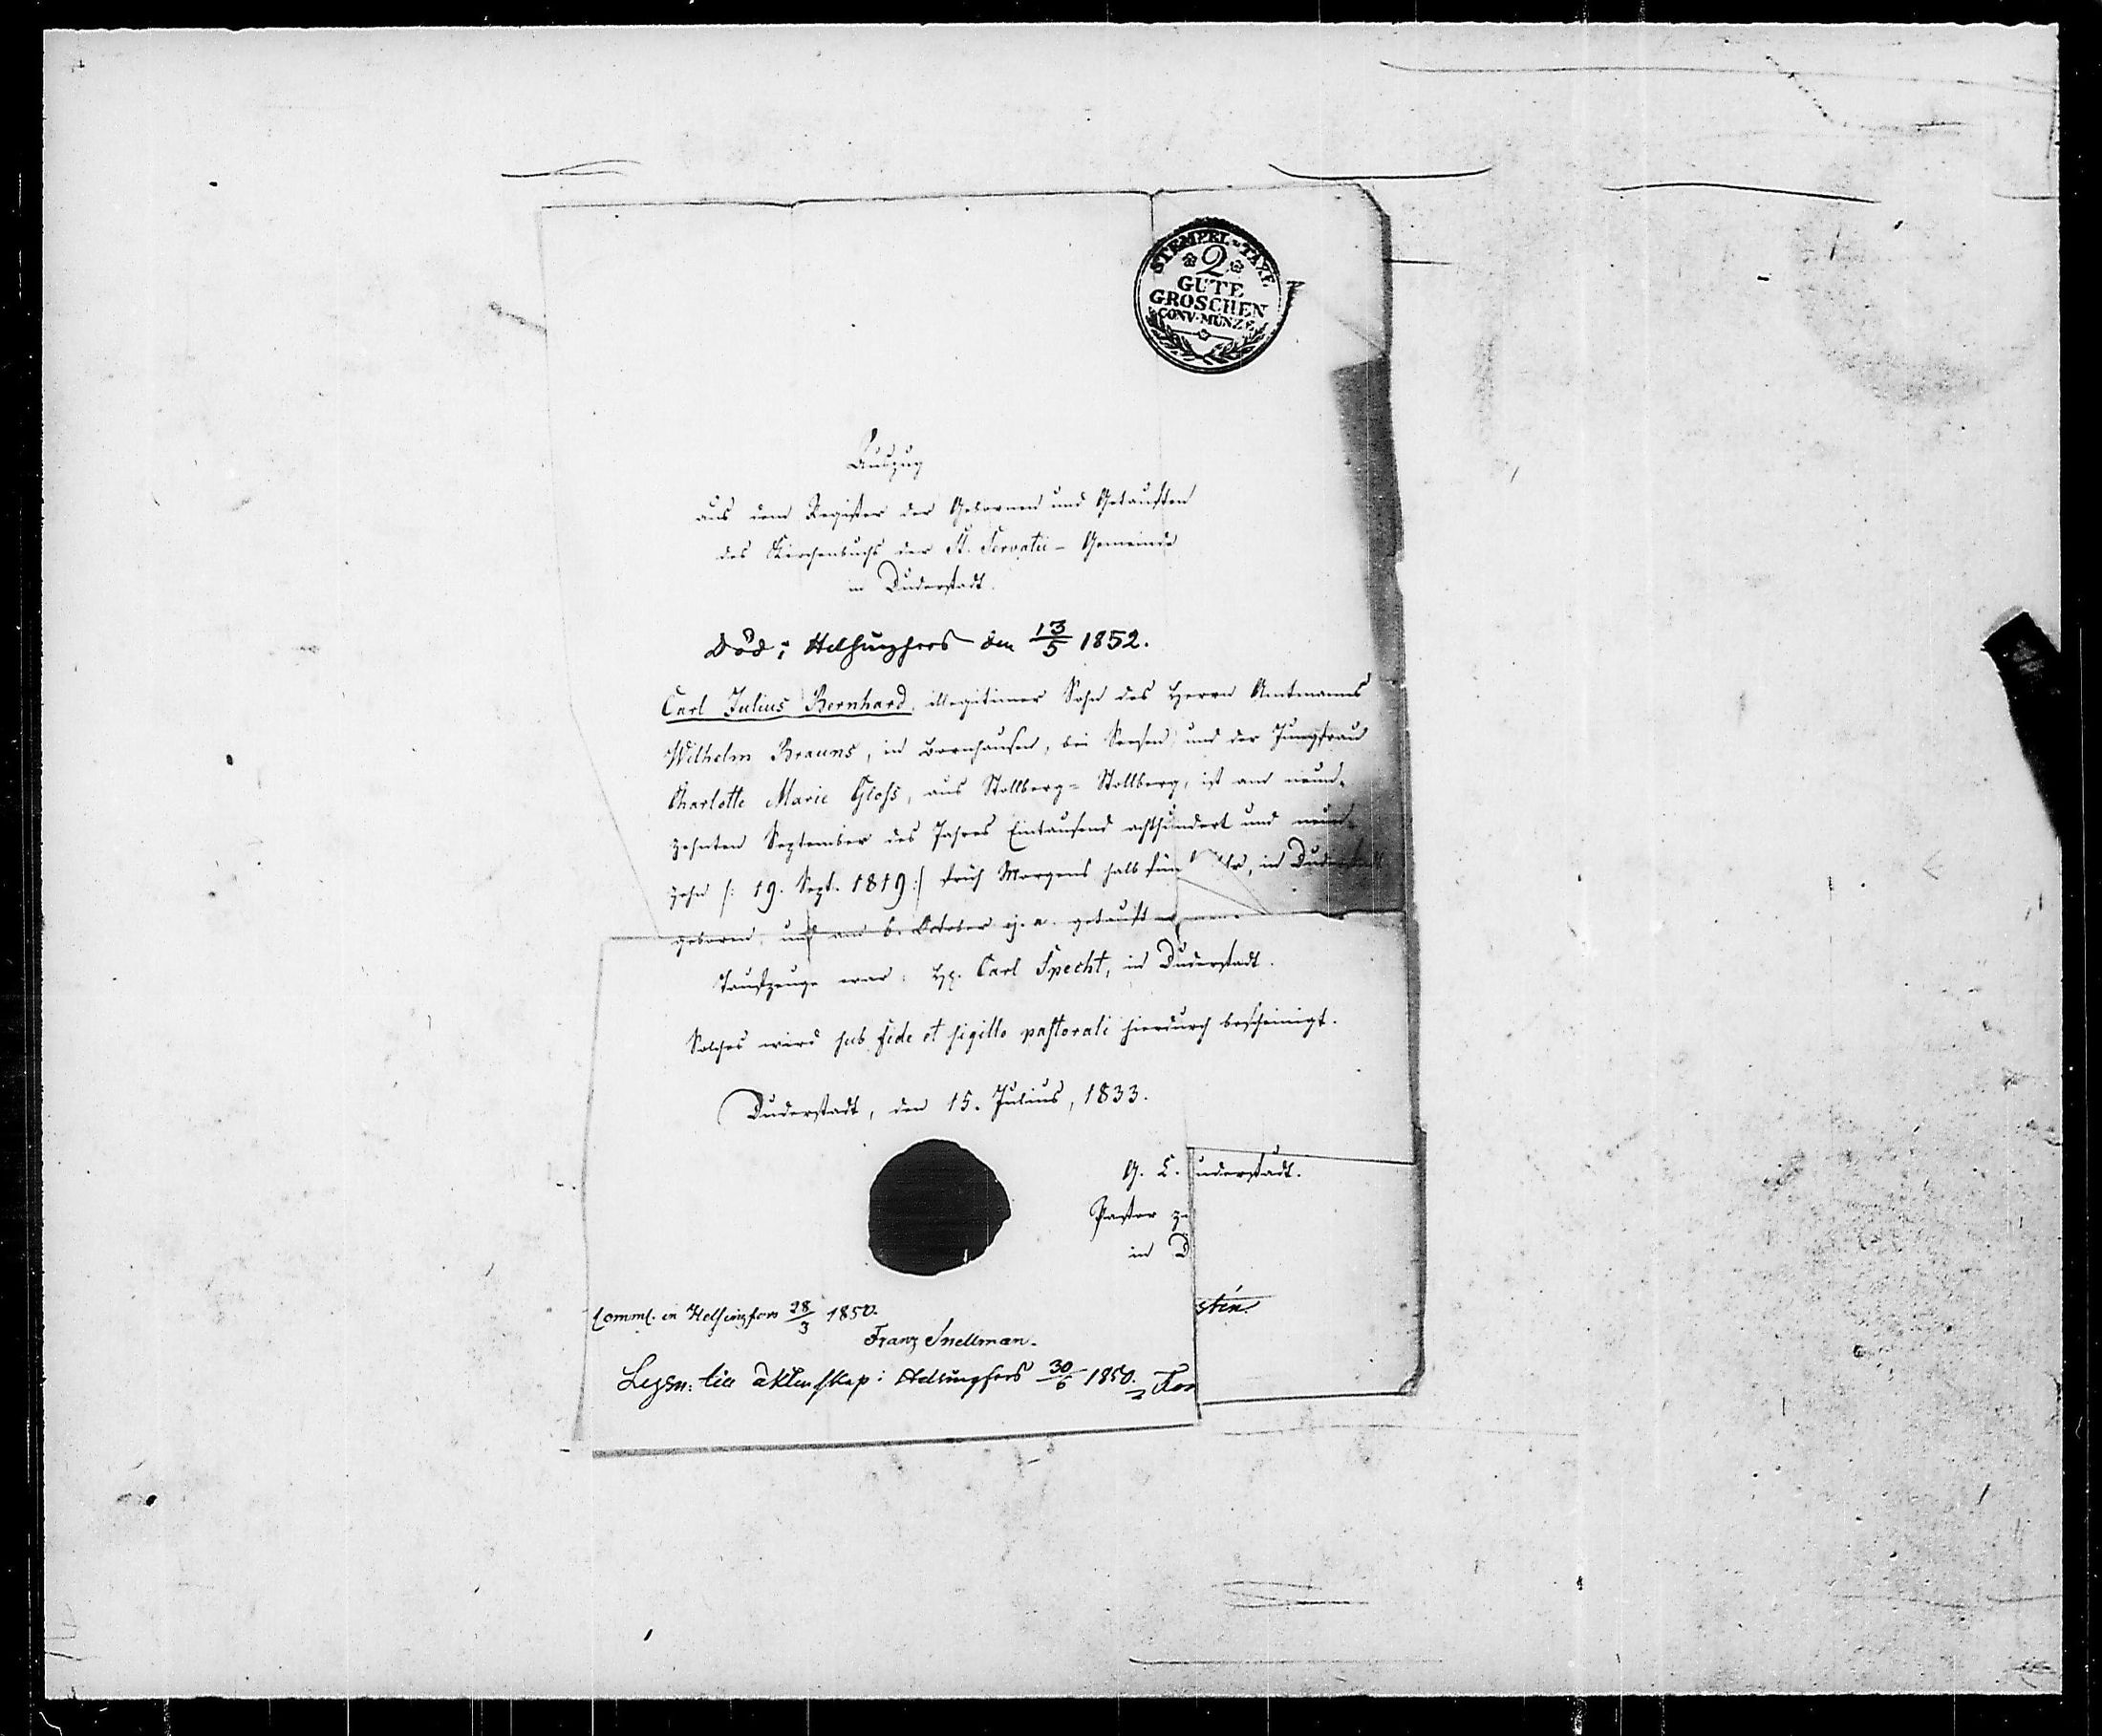 STEMPEL-TAXE
2
GUTE
GROSCHEN
CONV-MÜNZE
Auszug
aus dem Register der Gebornen und Getauften
des Kirchenbuchs der St. Servatii-Gemeinde
in Duderstadt.
Död i Helsingfors den 13/5 1852.
Carl Julius Bernhard, illegitimer Sohn des Herrn Amtmanns
Wilhelm Brauns, in Bornhausen, bei Seesen, und der Jungfrau
Charlotte Marie Gloss, aus Stollberg-Stollberg, ist am neun-
zehnten September des Jahres Eintausend achthundert und neun-
zehn /: 19. Sept. 1819 :/ früh Morgens halb fün Uhr, in Duderstadt
geboren, und am 6. October ej. a. getauft
Taufzeuge war: H. Carl Specht, in Duderstadt.
Solches wird sub fide et sigillo pastorali hierdurch bescheinigt.
Duderstadt, den 15. Julius, 1833.
G. L. uderstadt.
Pastor z
in D
Comml. in Helsingfors 28/3 1850.
Franz Snellman.
stén
Lysn: till äktenskap i Helsingfors 30/6 1850.